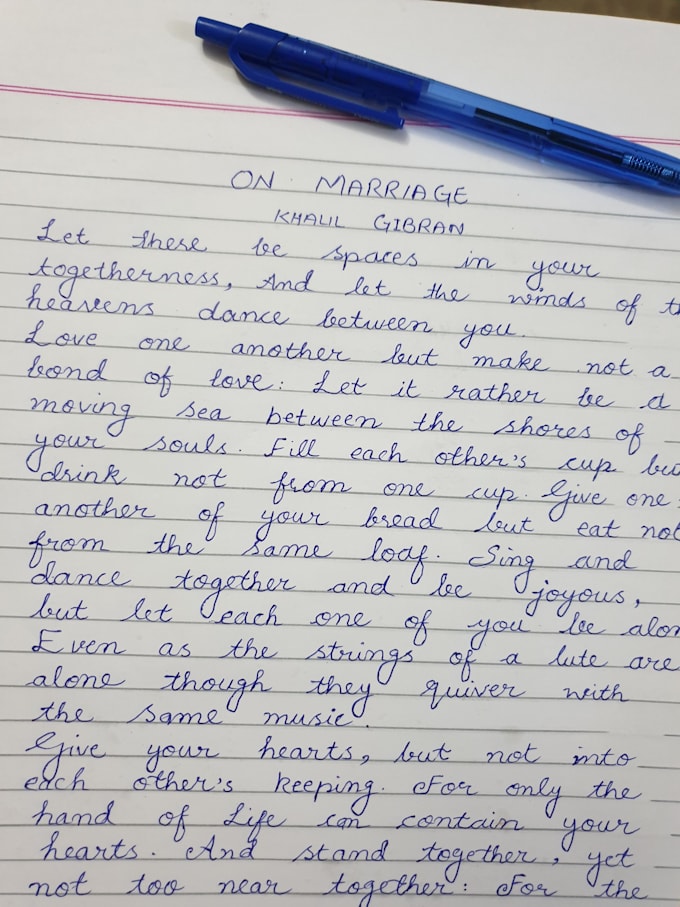 ON MARRIAGE
KHALIL GIBRAN
Let there be spaces in your
togetherness, And let the winds of th
heavens dance between you.
Love one another but make not a
bond of love: Let it rather be a
moving sea between the shores of
your souls. Fill each other's cup bu
drink not from one cup. Give one
another of your bread but eat not
from the same loaf. Sing and
dance together and be joyous,
but let each one of you be alon
Even as the strings of a lute are
alone though they quiver with
the same music.
Give your hearts, but not into
each other's keeping. For only the
hand of Life can contain your
hearts. And stand together, yet
not too near together: For the